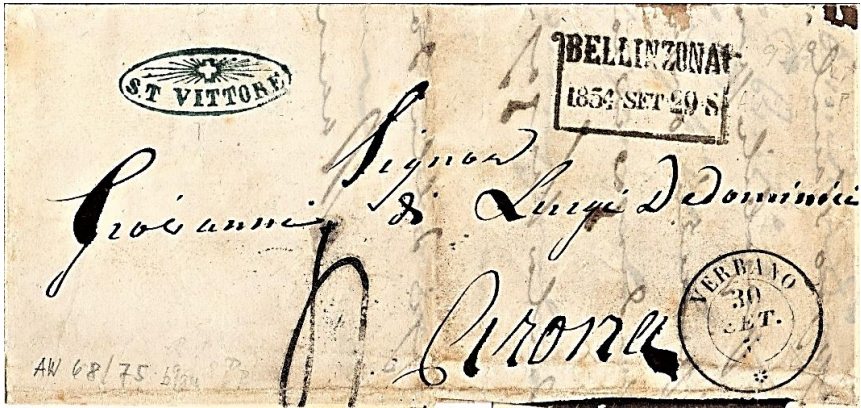 ST VITTORE
BELLINZONA
1854 SET 29 S
Signor
Giovanni di Luigi Dedominici
Arona
VERBANO
30
SET.
AW 68/75 blau